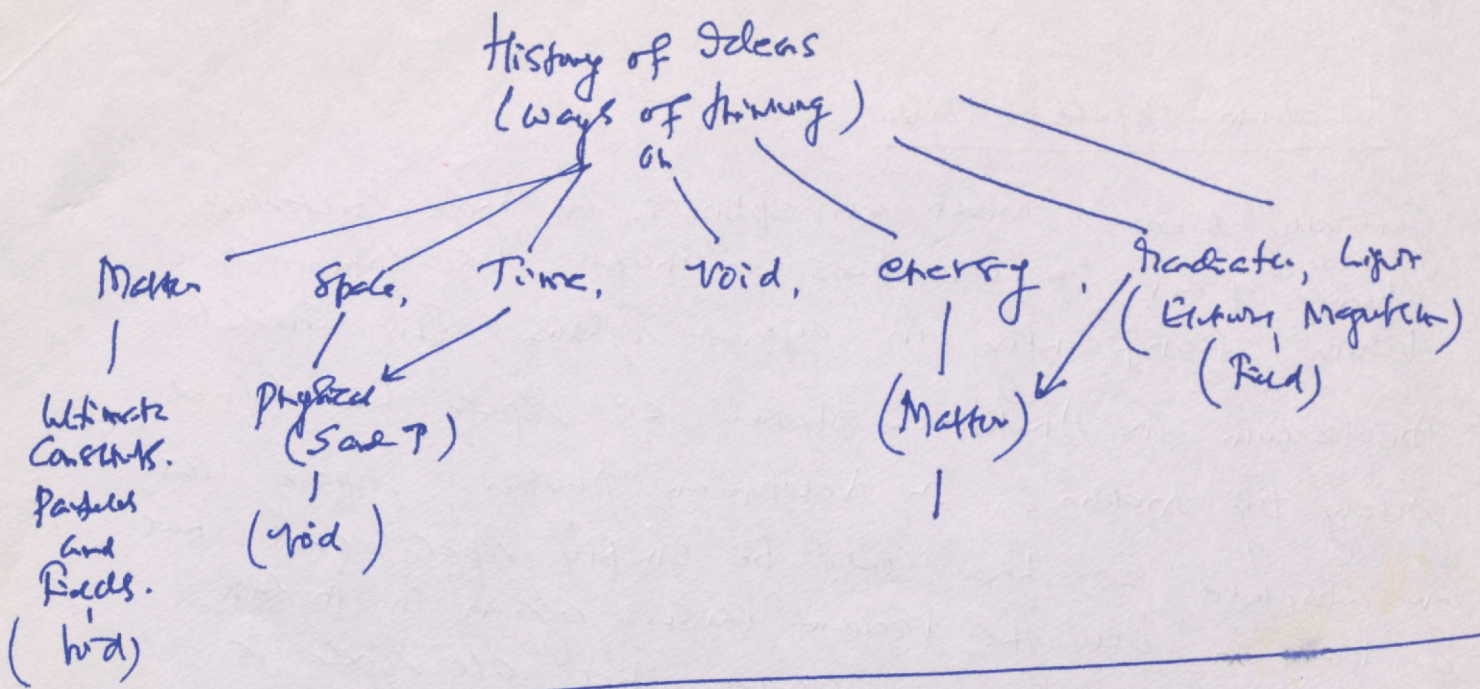 History of Ideas
(ways of thinking)
on
Matter Space, Time, Void, energy, Radiation, Light
(Electricity, Magnetism)
(Field)
Ultimate
Constituents.
Particles
and
Fields.
(Void)
Physical
(Void)
(Matter)